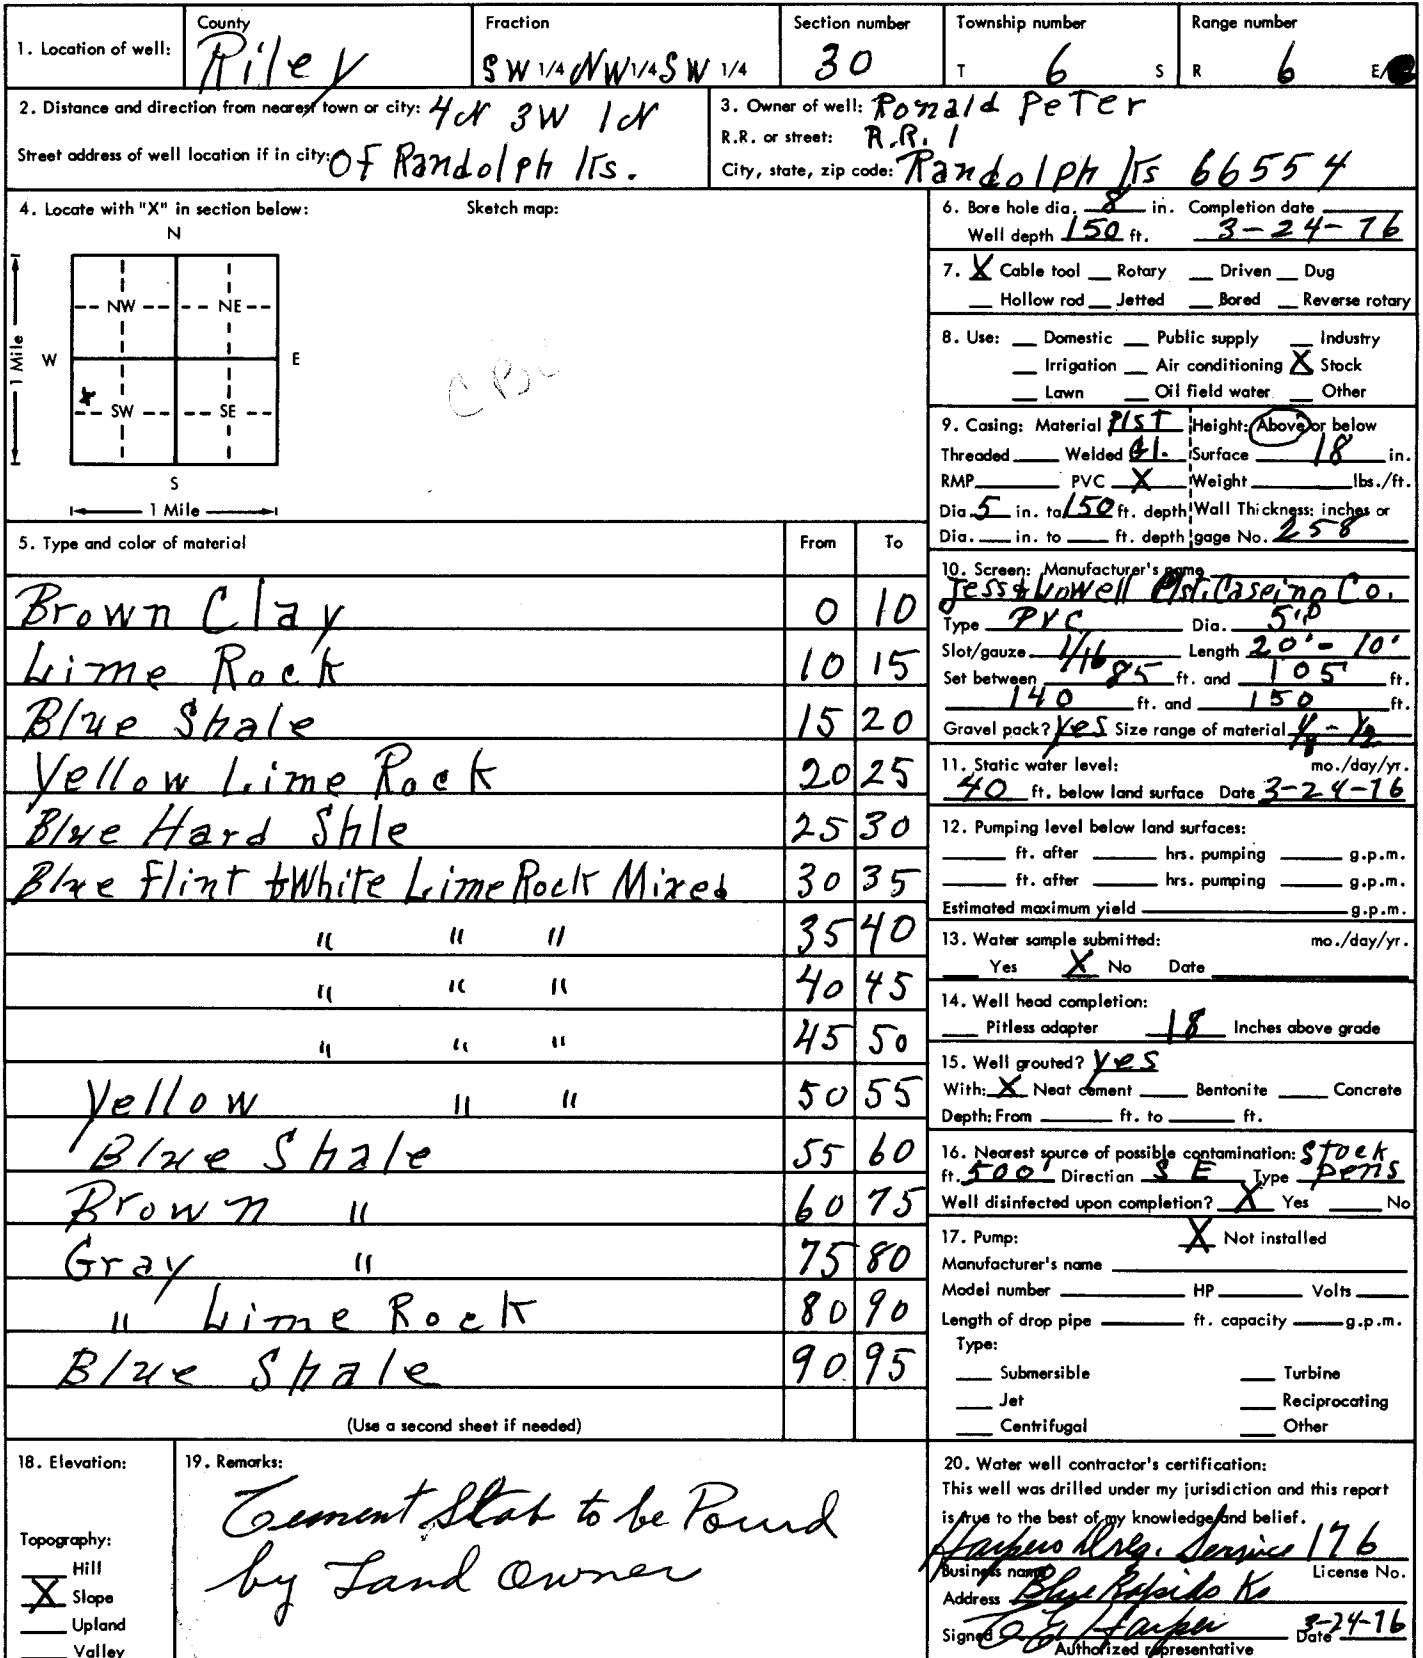 1. Location of well: County Riley Fraction SW 1/4 NW 1/4 SW 1/4 Section number 30 Township number T 6 S Range number R 6 E/
2. Distance and direction from nearest town or city: 4N 3W 1N
Street address of well location if in city: OF Randolph Ks.
3. Owner of well: Ronald Peter
R.R. or street: R.R. 1
City, state, zip code: Randolph Ks 66554
4. Locate with "X" in section below: Sketch map:
N
NW NE
W E
1 Mile
X
SW SE
S
1 Mile
5. Type and color of material From To
Brown Clay 0 10
Lime Rock 10 15
Blue Shale 15 20
Yellow Lime Rock 20 25
Blue Hard Shle 25 30
Blue Flint & White Lime Rock Mixed 30 35
" " " 35 40
" " " 40 45
" " " 45 50
Yellow " " 50 55
Blue Shale 55 60
Brown " 60 75
Gray " 75 80
" Lime Rock 80 90
Blue Shale 90 95
(Use a second sheet if needed)
6. Bore hole dia. 8 in. Completion date
Well depth 150 ft. 3-24-76
7. X Cable tool Rotary Driven Dug
Hollow rod Jetted Bored Reverse rotary
8. Use: Domestic Public supply Industry
Irrigation Air conditioning X Stock
Lawn Oil field water Other
9. Casing: Material Plst Height: Above or below
Threaded Welded Gl. Surface 18 in.
RMP PVC X Weight lbs./ft.
Dia. 5 in. to 150 ft. depth Wall Thickness: inches or
Dia. in. to ft. depth gage No. 258
10. Screen: Manufacturer's name
Jess & Lowell Plst. Caseing Co.
Type PVC Dia. 5"
Slot/gauze 1/16 Length 20' - 10'
Set between 85 ft. and 105 ft.
140 ft. and 150 ft.
Gravel pack? Yes Size range of material 1/8 - 1/2
11. Static water level: mo./day/yr.
40 ft. below land surface Date 3-24-76
12. Pumping level below land surfaces:
ft. after hrs. pumping g.p.m.
ft. after hrs. pumping g.p.m.
Estimated maximum yield g.p.m.
13. Water sample submitted: mo./day/yr.
Yes X No Date
14. Well head completion:
Pitless adapter 18 Inches above grade
15. Well grouted? Yes
With: X Neat cement Bentonite Concrete
Depth: From ft. to ft.
16. Nearest source of possible contamination: Stock
ft. 500' Direction S E Type Pens
Well disinfected upon completion? X Yes No
17. Pump: X Not installed
Manufacturer's name
Model number HP Volts
Length of drop pipe ft. capacity g.p.m.
Type:
Submersible Turbine
Jet Reciprocating
Centrifugal Other
18. Elevation:
Topography:
Hill
X Slope
Upland
Valley
19. Remarks:
Cement Slab to be Pourd
by Land Owner
20. Water well contractor's certification:
This well was drilled under my jurisdiction and this report
is true to the best of my knowledge and belief.
Harpers Drlg. Service 176
Business name License No.
Address Blue Rapids Ks
Signed Harper Date 3-24-76
Authorized representative